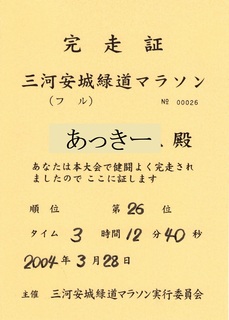 完走証
三河安城緑道マラソン
(フル) № 00026
あっきー、殿
あなたは本大会で健闘よく完走され
ましたので ここに証します
順位 第 26 位
タイム 3 時間 12 分 40 秒
2004年 3月 28日
主催 三河安城緑道マラソン実行委員会